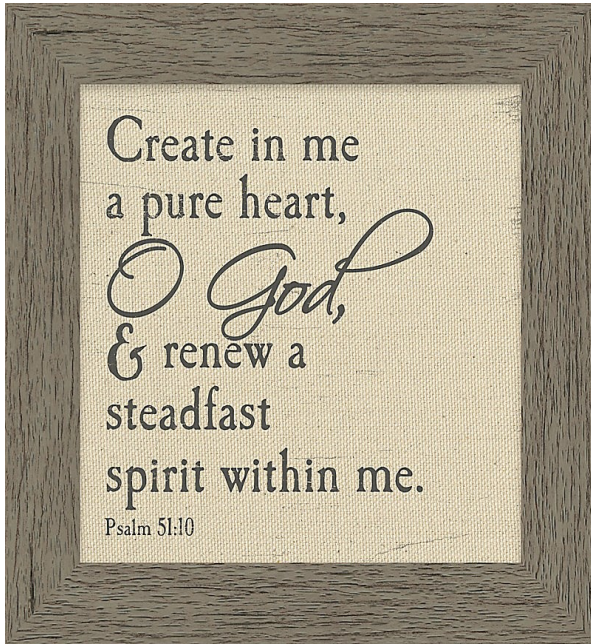 Create in me
a pure heart,
O God,
& renew a
steadfast
spirit within me.
Psalm 51:10